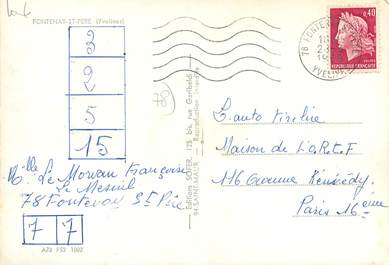 FONTENAY-ST-PÈRE (Yvelines)
3
2
5
15
Mlle Le Morvan Françoise
Le Mesnil
78 Fontenay St Père
7 7
A78 P52 1002
Editions SOFER, 125 bis, rue Garibaldi
94-SAINT-MAUR — Reproduction interdite
78
78 FONTENAY
YVELINES
0,40
REPUBLIQUE FRANÇAISE
L'auto tirelire
Maison de L'O.R.T.F
116 Avenue Kennedy
Paris 16ème